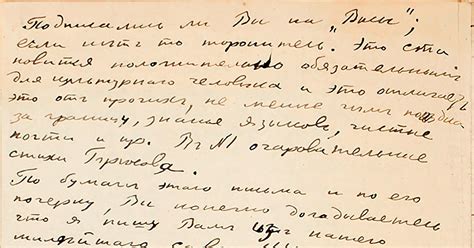 Подписались ли Вы на "Весы";
если нетъ то торопитесь. Это ста
новится положительно обязательнымъ
для культурнаго человѣка и это отличаетъ
его отъ прочихъ, не менѣе чѣмъ поѣздка
за границу, знанье языковъ, чистые
ногти и пр. Въ №1 очаровательные
стихи Брюсова.
По бумагѣ этого письма и по его
почерку, Вы конечно догадываетесь
что я пишу Вамъ изъ нашего
милѣйшаго